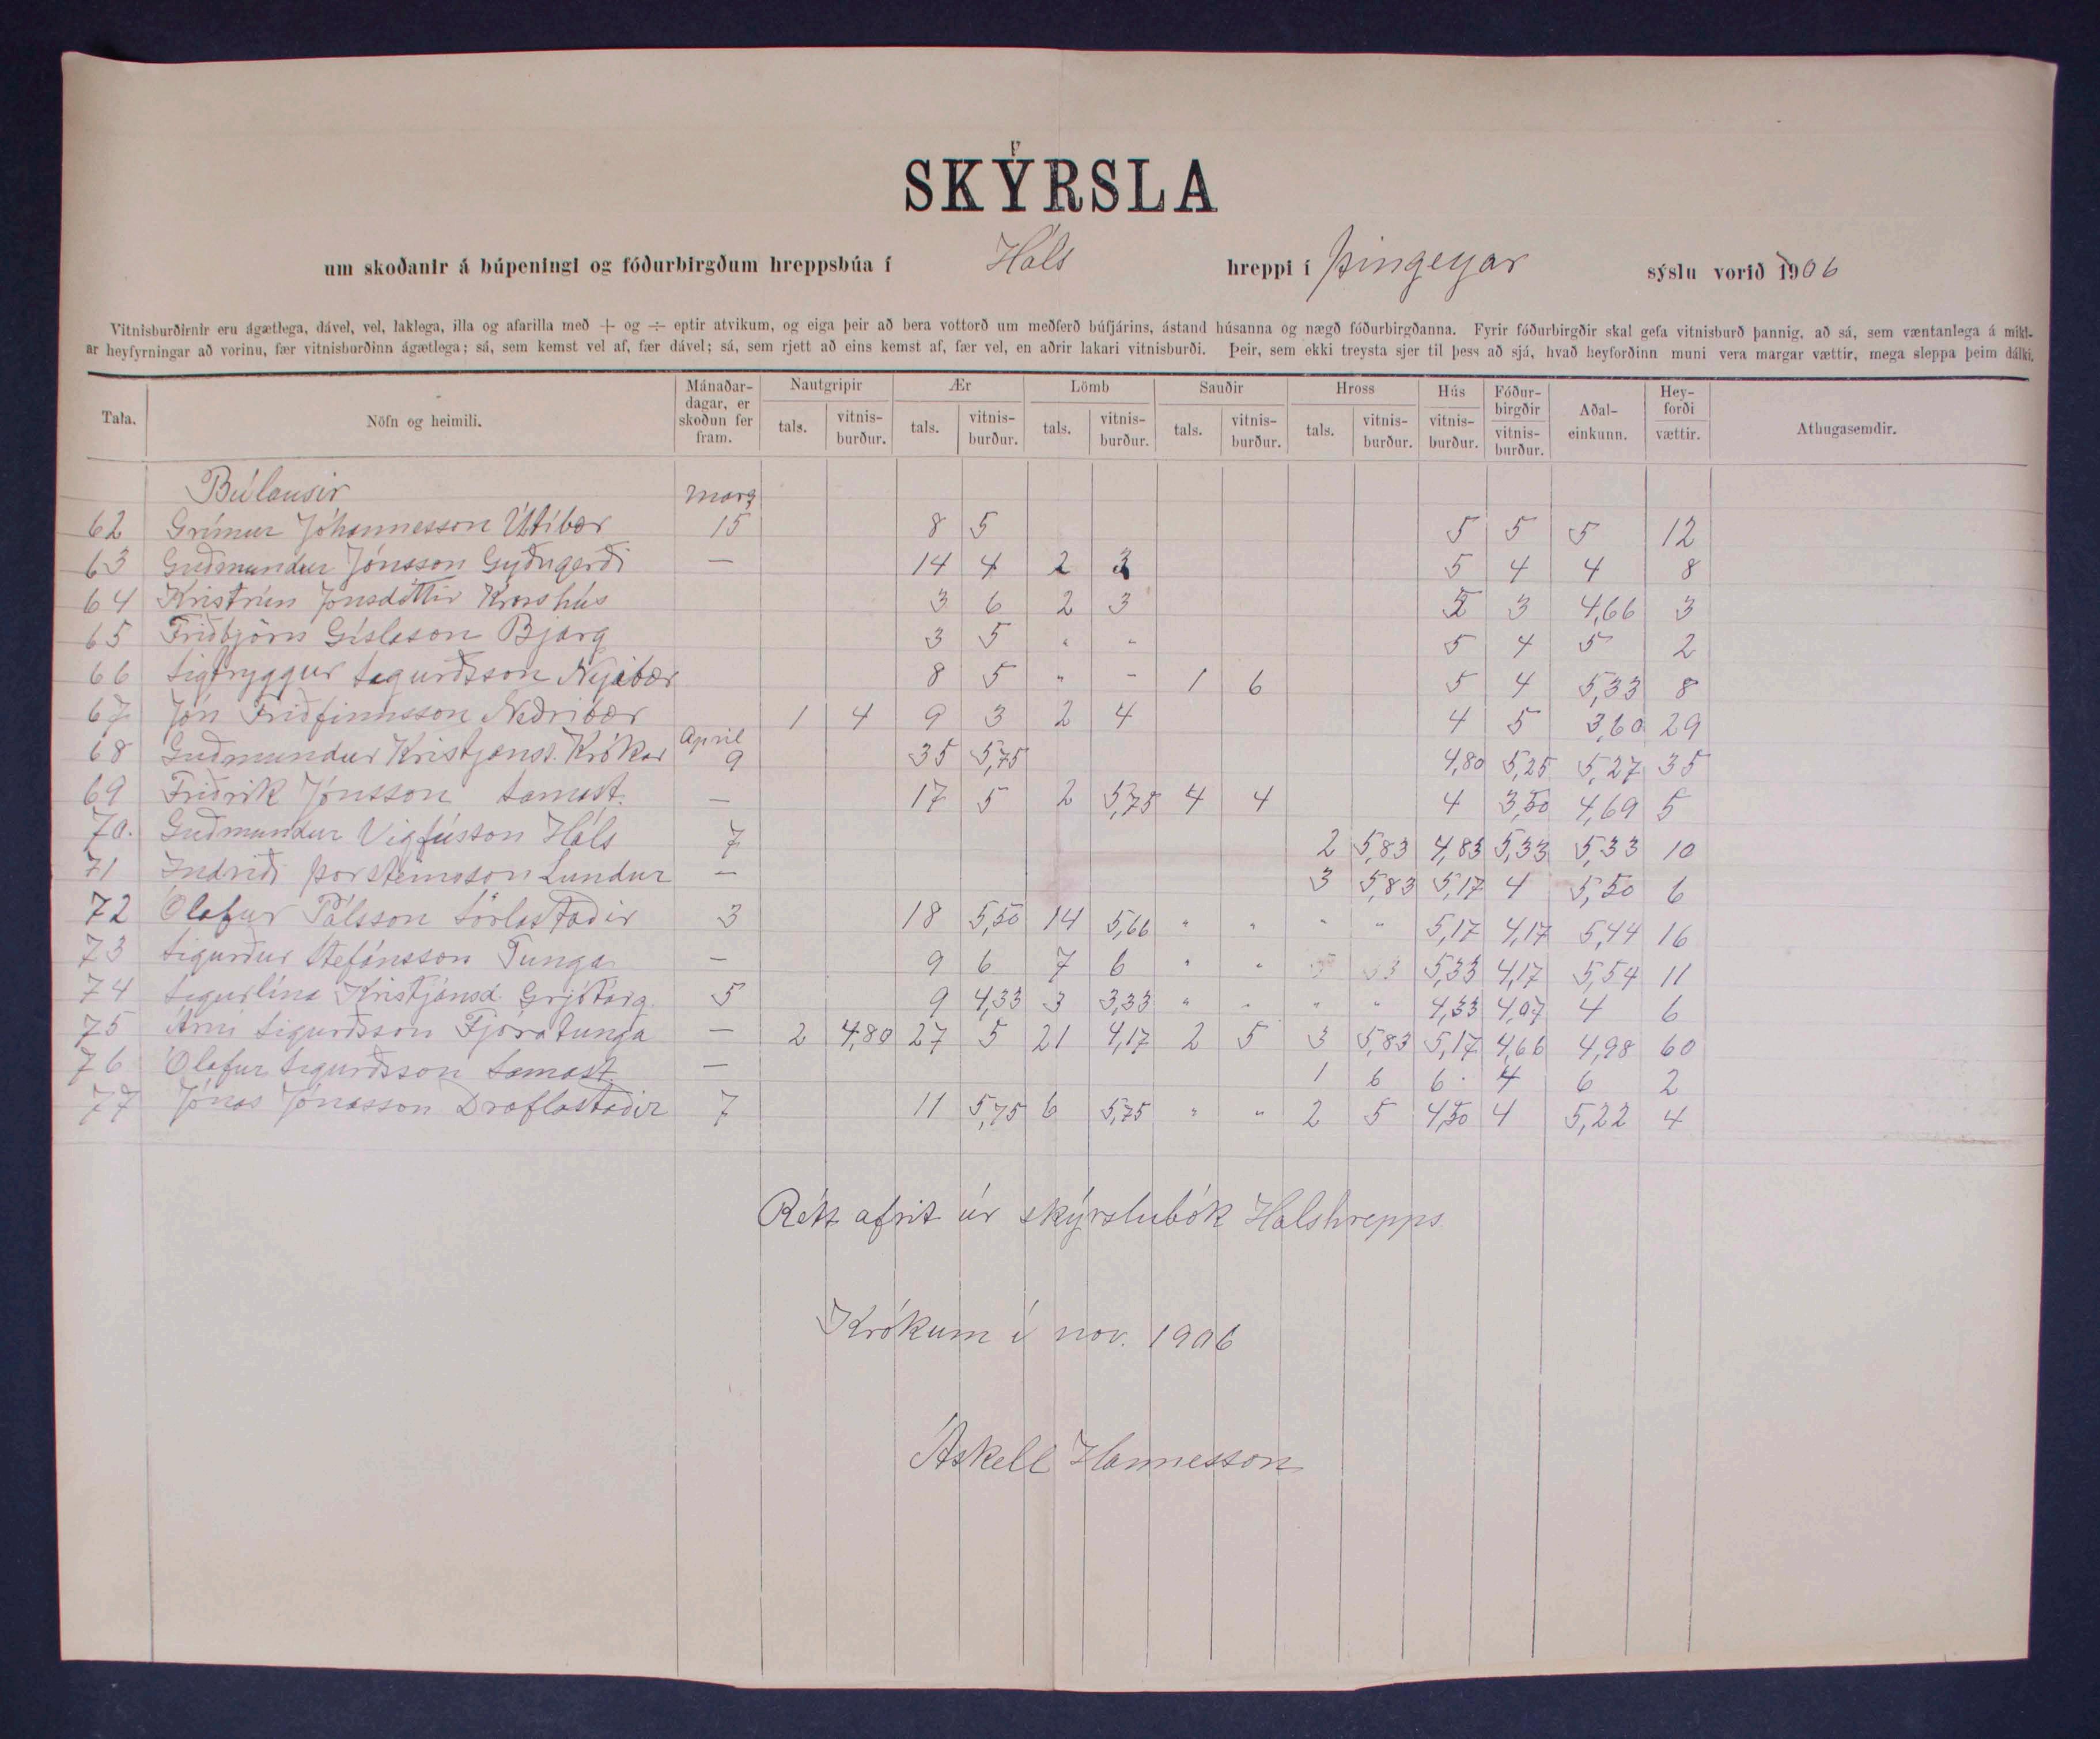 SKÝRSLA
um skoðanir á búpeningi og fóðurbirgðum hreppsbúa í Háls hreppi í Þingeyar sýslu vorið 1906
Vitnisburðirnir eru ágætlega, dável, vel, laklega, illa og afarilla með + og ÷ eptir atvikum, og eiga þeir að bera vottorð um meðferð búfjárins, ástand húsanna og nægð fóðurbirgðanna. Fyrir fóðurbirgðir skal gefa vitnisburð þannig, að sá, sem væntanlega á mikl-
ar heyfyrningar að vorinu, fær vitnisburðinn ágætlega; sá, sem kemst vel af, fær dável; sá, sem rjett að eins kemst af, fær vel, en aðrir lakari vitnisburði. Þeir, sem ekki treysta sjer til þess að sjá, hvað heyforðinn muni vera margar vættir, mega sleppa þeim dálki.
Tala. Nöfn og heimili. Mánaðar-dagar, er skoðun fer fram. Nautgripir Ær Lömb Sauðir Hross Hús Fóður-birgðir Aðal-einkunn. Hey-forði Athugasemdir.
tals. vitnis-burður. tals. vitnis-burður. tals. vitnis-burður. tals. vitnis-burður. tals. vitnis-burður. vitnis-burður. vitnis-burður. vættir.
Búlausir marz
62 Grímur Jóhannesson Útibær 15 8 5 5 5 5 12
63 Guðmundur Jónsson Gyðugerði — 14 4 2 3 5 4 4 8
64 Kristrún Jónsdóttir Krosshús 3 6 2 3 5 3 4,66 3
65 Friðbjörn Gíslason Bjarg 3 5 " " 5 4 5 2
66 Sigtryggur Sigurðsson Nýibær 8 5 " - 1 6 5 4 5,33 8
67 Jón Friðfinnsson Neðribær 1 4 9 3 2 4 4 5 3,60 29
68 Guðmundur Kristjánss. Krókar April 9 35 5,75 4,80 5,25 5,27 35
69 Friðrik Jónsson Samast. — 17 5 2 5,75 4 4 4 3,50 4,69 5
70. Guðmundur Vigfússon Háls 7 2 5,83 4,83 5,33 5,33 10
71 Indriði Þorsteinsson Lundur — 3 5,83 5,17 4 5,50 6
72 Ólafur Pálsson Sörlastaðir 3 18 5,50 14 5,66 " " " " 5,17 4,17 5,44 16
73 Sigurður Stefánsson Tunga — 9 6 7 6 " " 5,33 4,17 5,54 11
74 Sigurlína Kristjánsd. Grjótárg. 5 9 4,33 3 3,33 " " " " 4,33 4,07 4 6
75 Árni Sigurðsson Fjósatunga — 2 4,80 27 5 21 4,17 2 5 3 5,83 5,17 4,66 4,98 60
76 Ólafur Sigurðsson Samast — 1 6 6 4 6 2
77 Jónas Jónasson Draflastaðir 7 11 5,75 6 5,75 " " 2 5 4,50 4 5,22 4
Rétt afrit úr skýrslubók Halshrepps
Krókum í nov. 1906
Áskell Hannesson